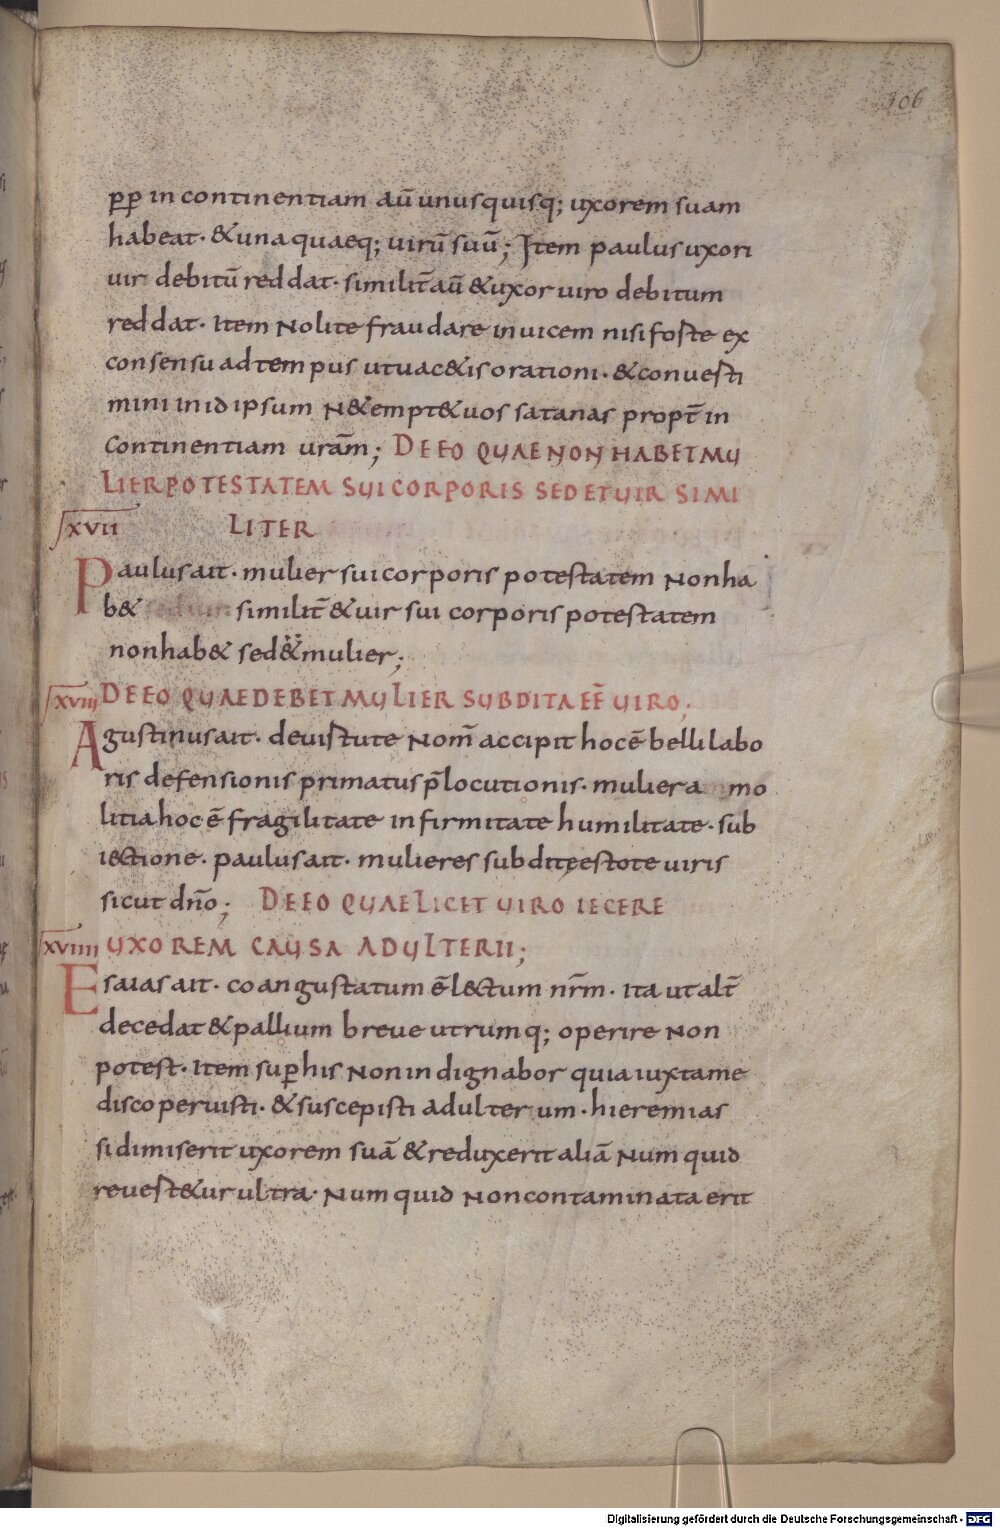 306
pp in continentiam aū unusquisq; uxorem suam
habeat. & una quaeq; uirū suū; Item paulus uxori
uir debitū reddat. similit̄ aū & uxor uiro debitum
reddat. Item Nolite fraudare inuicem nisi foste ex
consensu ad tempus ut uac&is orationi. & conuesti
mini in id ipsum N& empt& uos satanas propt̄ in
continentiam uram̄; DE EO QUAE NON HABET MU
LIER POTESTATEM SUI CORPORIS SED ET UIR SIMI
XVII LITER
Paulus ait. mulier sui corporis potestatem Non ha
b& similit̄ & uir sui corporis potestatem
non hab& sed & mulier;
XVIII DE EO QUAE DEBET MULIER SUBDITA EE̅ UIRO;
Agustinus ait. deuistute Nom̄ accipit hoc ē belli labo
ris defensionis primatus p̄locutionis. mulier a mo
litia hoc ē fragilitate infirmitate humilitate. sub
iectione. paulus ait. mulieres subditę estote uiris
sicut dño; DE EO QUAE LICET UIRO IECERE
XVIIII UXOREM CAUSA ADULTERII;
Esaias ait. coangustatum ē l&ctum nr̄m. ita ut alt̄
decedat & pallium breue utrumq; operire Non
potest. Item sup his Non indignabor quia iuxta me
discoperuisti. & suscepisti adulterum. hieremias
si dimiserit uxorem suā & reduxerit aliā Numquid
reuest&ur ultra. Numquid Non contaminata erit
Digitalisierung gefördert durch die Deutsche Forschungsgemeinschaft - DFG